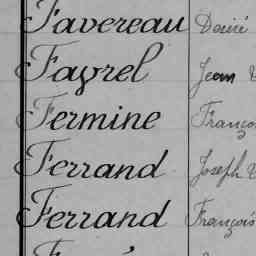 Favereau Désiré
Fayrel Jean
Fermine
Ferrand Joseph
Ferrand François